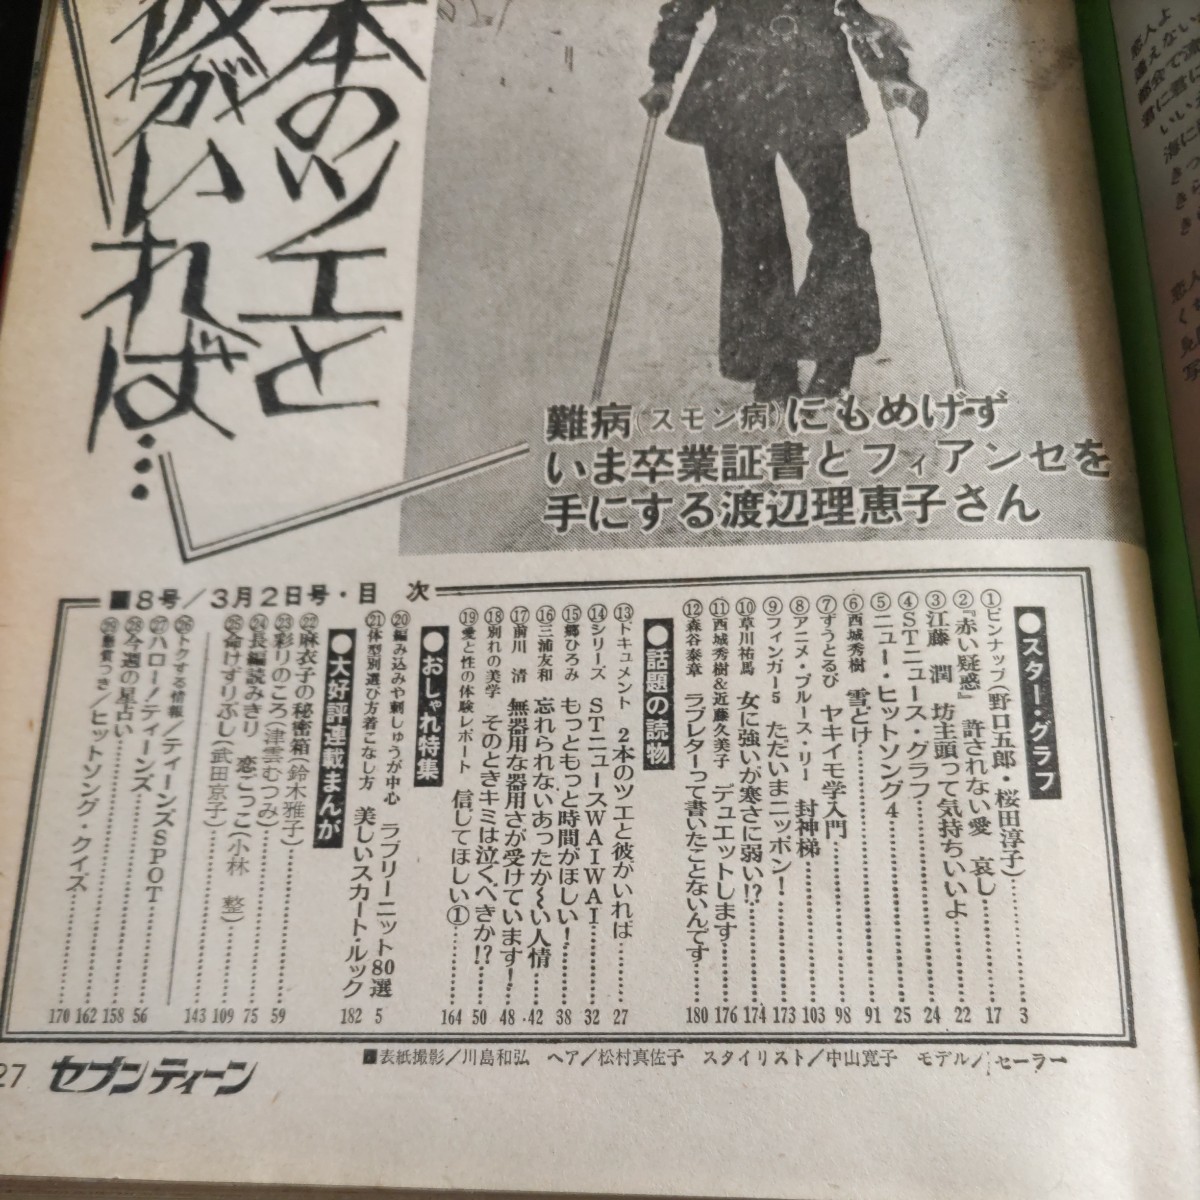 本のツエと
彼がいれば…
難病(スモン病)にもめげず
いま卒業証書とフィアンセを
手にする渡辺理恵子さん
■8号／3月2日号・目 次
●スター・グラフ
①ピンナップ(野口五郎・桜田淳子)……3
②『赤い疑惑』 許されない愛 哀し……17
③江藤 潤 坊主頭って気持ちいいよ……22
④STニュース・グラフ……24
⑤ニュー・ヒットソング4……25
⑥西城秀樹 雪どけ……91
⑦ずうとるび ヤキイモ学入門……98
⑧アニメ・ブルース・リー 封神梯……103
⑨フィンガー5 ただいまニッポン!……173
⑩草川祐馬 女に強いが寒さに弱い!?……174
⑪西城秀樹&近藤久美子 デュエットします……176
⑫森谷泰章 ラブレターって書いたことないんです……180
●話題の読物
⑬ドキュメント 2本のツエと彼がいれば……27
⑭シリーズ STニュースWAIWAI……32
⑮郷ひろみ もっともっと時間がほしい!……38
⑯三浦友和 忘れられないあったか〜い人情……42
⑰前川 清 無器用な器用さが受けています!……48
⑱別れの美学 そのときキミは泣くべきか!?……50
⑲愛と性の体験レポート 信じてほしい①……164
●おしゃれ特集
⑳編み込みや刺しゅうが中心 ラブリーニット80選 5
㉑体型別選び方着こなし方 美しいスカート・ルック 182
●大好評連載まんが
㉒麻衣子の秘密箱(鈴木雅子)……59
㉓彩りのころ(津雲むつみ)……75
㉔長編読みきり 恋ごっこ(小林 整)……109
㉕命けずりぶし(武田京子)……143
㉖トクする情報／ティーンズSPOT……56
㉗ハロー!ティーンズ……158
㉘今週の星占い……162
㉙懸賞つき／ヒットソング・クイズ……170
27 セブンティーン
■表紙撮影／川島和弘 ヘア／松村真佐子 スタイリスト／中山寛子 モデル／セーラー